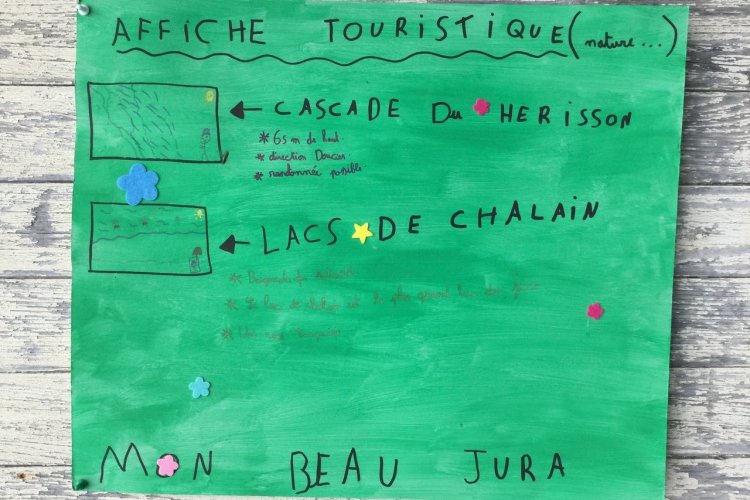 AFFICHE TOURISTIQUE (nature...)
CASCADE Du HERISSON
* 65 m de haut
* direction Doucier
* randonnée possible
LACS DE CHALAIN
* Baignade
* Le lac de est le plus grand lac du
*
MON BEAU JURA